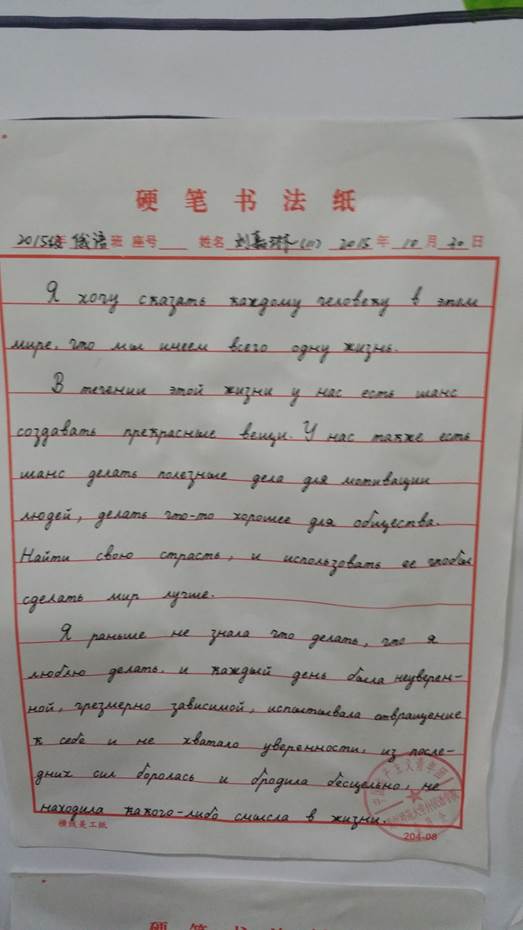 硬笔书法纸
2015级 俄语班 座号 姓名 刘嘉琳(11) 2015年10月30日
Я хочу сказать каждому человеку в этом
мире, что мы имеем всего одну жизнь.
В течении этой жизни у нас есть шанс
создавать прекрасные вещи. У нас также есть
шанс делать полезные дела для мотивации
людей, делать что-то хорошее для общества.
Найти свою страсть, и использовать ее чтобы
сделать мир лучше.
Я раньше не знала что делать, что я
люблю делать. и каждый день была неуверен-
ной, чрезмерно зависимой, испытывала отвращение
к себе и не хватало уверенности, из после-
дних сил боролась и бродила бесцельно, не
находила какого-либо смысла в жизни.
横线是工纸
204-08
硬笔书法纸